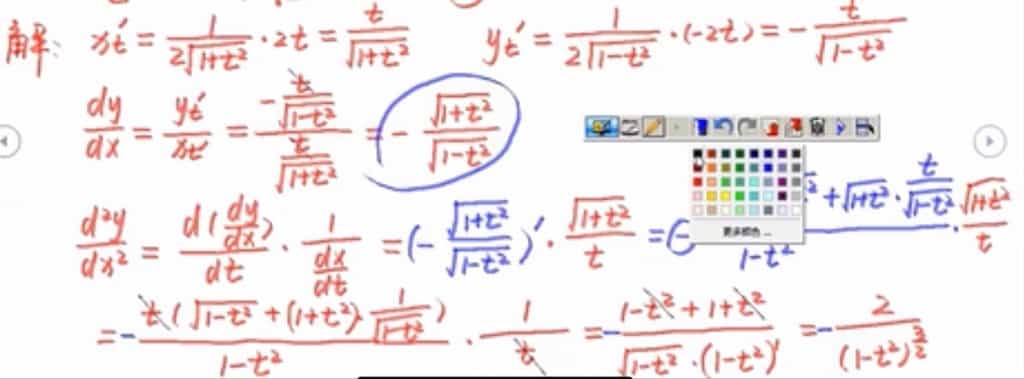 解: x't = 1/(2√(1+t²)) · 2t = t/√(1+t²)    y't = 1/(2√(1-t²)) · (-2t) = - t/√(1-t²)
dy/dx = y't/x't = (- t/√(1-t²))/(t/√(1+t²)) = - √(1+t²)/√(1-t²)
d²y/dx² = d(dy/dx)/dt · 1/(dx/dt) = (- √(1+t²)/√(1-t²))' · √(1+t²)/t = (- + √(1+t²) · t/√(1-t²))/(1-t²) · √(1+t²)/t
更多颜色 ...
= - t(√(1-t²) + (1+t²) · 1/√(1-t²))/(1-t²) · 1/t = - (1-t²+1+t²)/(√(1-t²) · (1-t²)) = - 2/(1-t²)^(3/2)